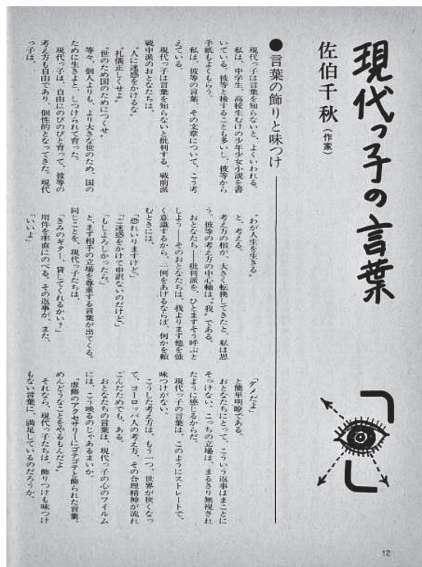 現代っ子の言葉
佐伯千秋(作家)
●言葉の飾りと味つけ
現代っ子は言葉を知らないと、よくいわれる。
私は、中学生、高校生むけの少年少女小説を書
いている。彼等と接することも多いし、彼等から
手紙もよくもらう。
私は、彼等の言葉、その文章について、こう考
えている。
現代っ子は言葉を知らないと批判する、戦前派
戦中派のおとなたちは、
"人に迷惑をかけるな"
"礼儀正しくせよ"
"世のため国のためにつくせ"
等々、個人よりも、より大きな世のため、国の
ために生きよと、しつけられて育った。
現代っ子は、自由にのびのびと育って、彼等の
考え方も自由であり、個性的となってきた。現代
っ子は、
"わが人生を生きる"
と、考える。
考え方の根が、大きく転換してきたと、私は思
う。彼等の考え方の中心軸は、"我"である。
おとなたち―批判派を、ひとまずそう呼ぶと
しよう―そのおとなたちは、我よりまず他を強
く意識するから、一例をあげるならば、何かを頼
むときには、
「恐れいりますけど」
「ご迷惑をかけて申訳ないのだけど」
「もしよろしかったら」
と、まず相手の立場を尊重する言葉が出てくる。
同じことを、現代っ子たちは、
「きみのギター、貸してくれるかい?」
用件を率直にのべる。その返事が、また、
「いいよ」
「ダメだよ」
と簡単明瞭である。
おとなたちにとって、こういう返事はまことに
そっけない、こっちの立場は、まるきり無視され
たように感じるからだ。
現代っ子の言葉は、このようにストレートで、
味つけがない。
こうした考え方は、もう一つ、世界が狭くなっ
て、ヨーロッパ人の考え方、その合理精神が流れ
こんだためでも、ある。
おとなたちの言葉は、現代っ子の心のフイルム
には、こう映るのじゃあるまいか。
"虚飾のアクセサリーにゴテゴテと飾られた言葉。
めんどうなことをやるもんだよ"
それなら、現代っ子たちは、飾りつけも味つけ
もない言葉に、満足しているのだろうか。
12